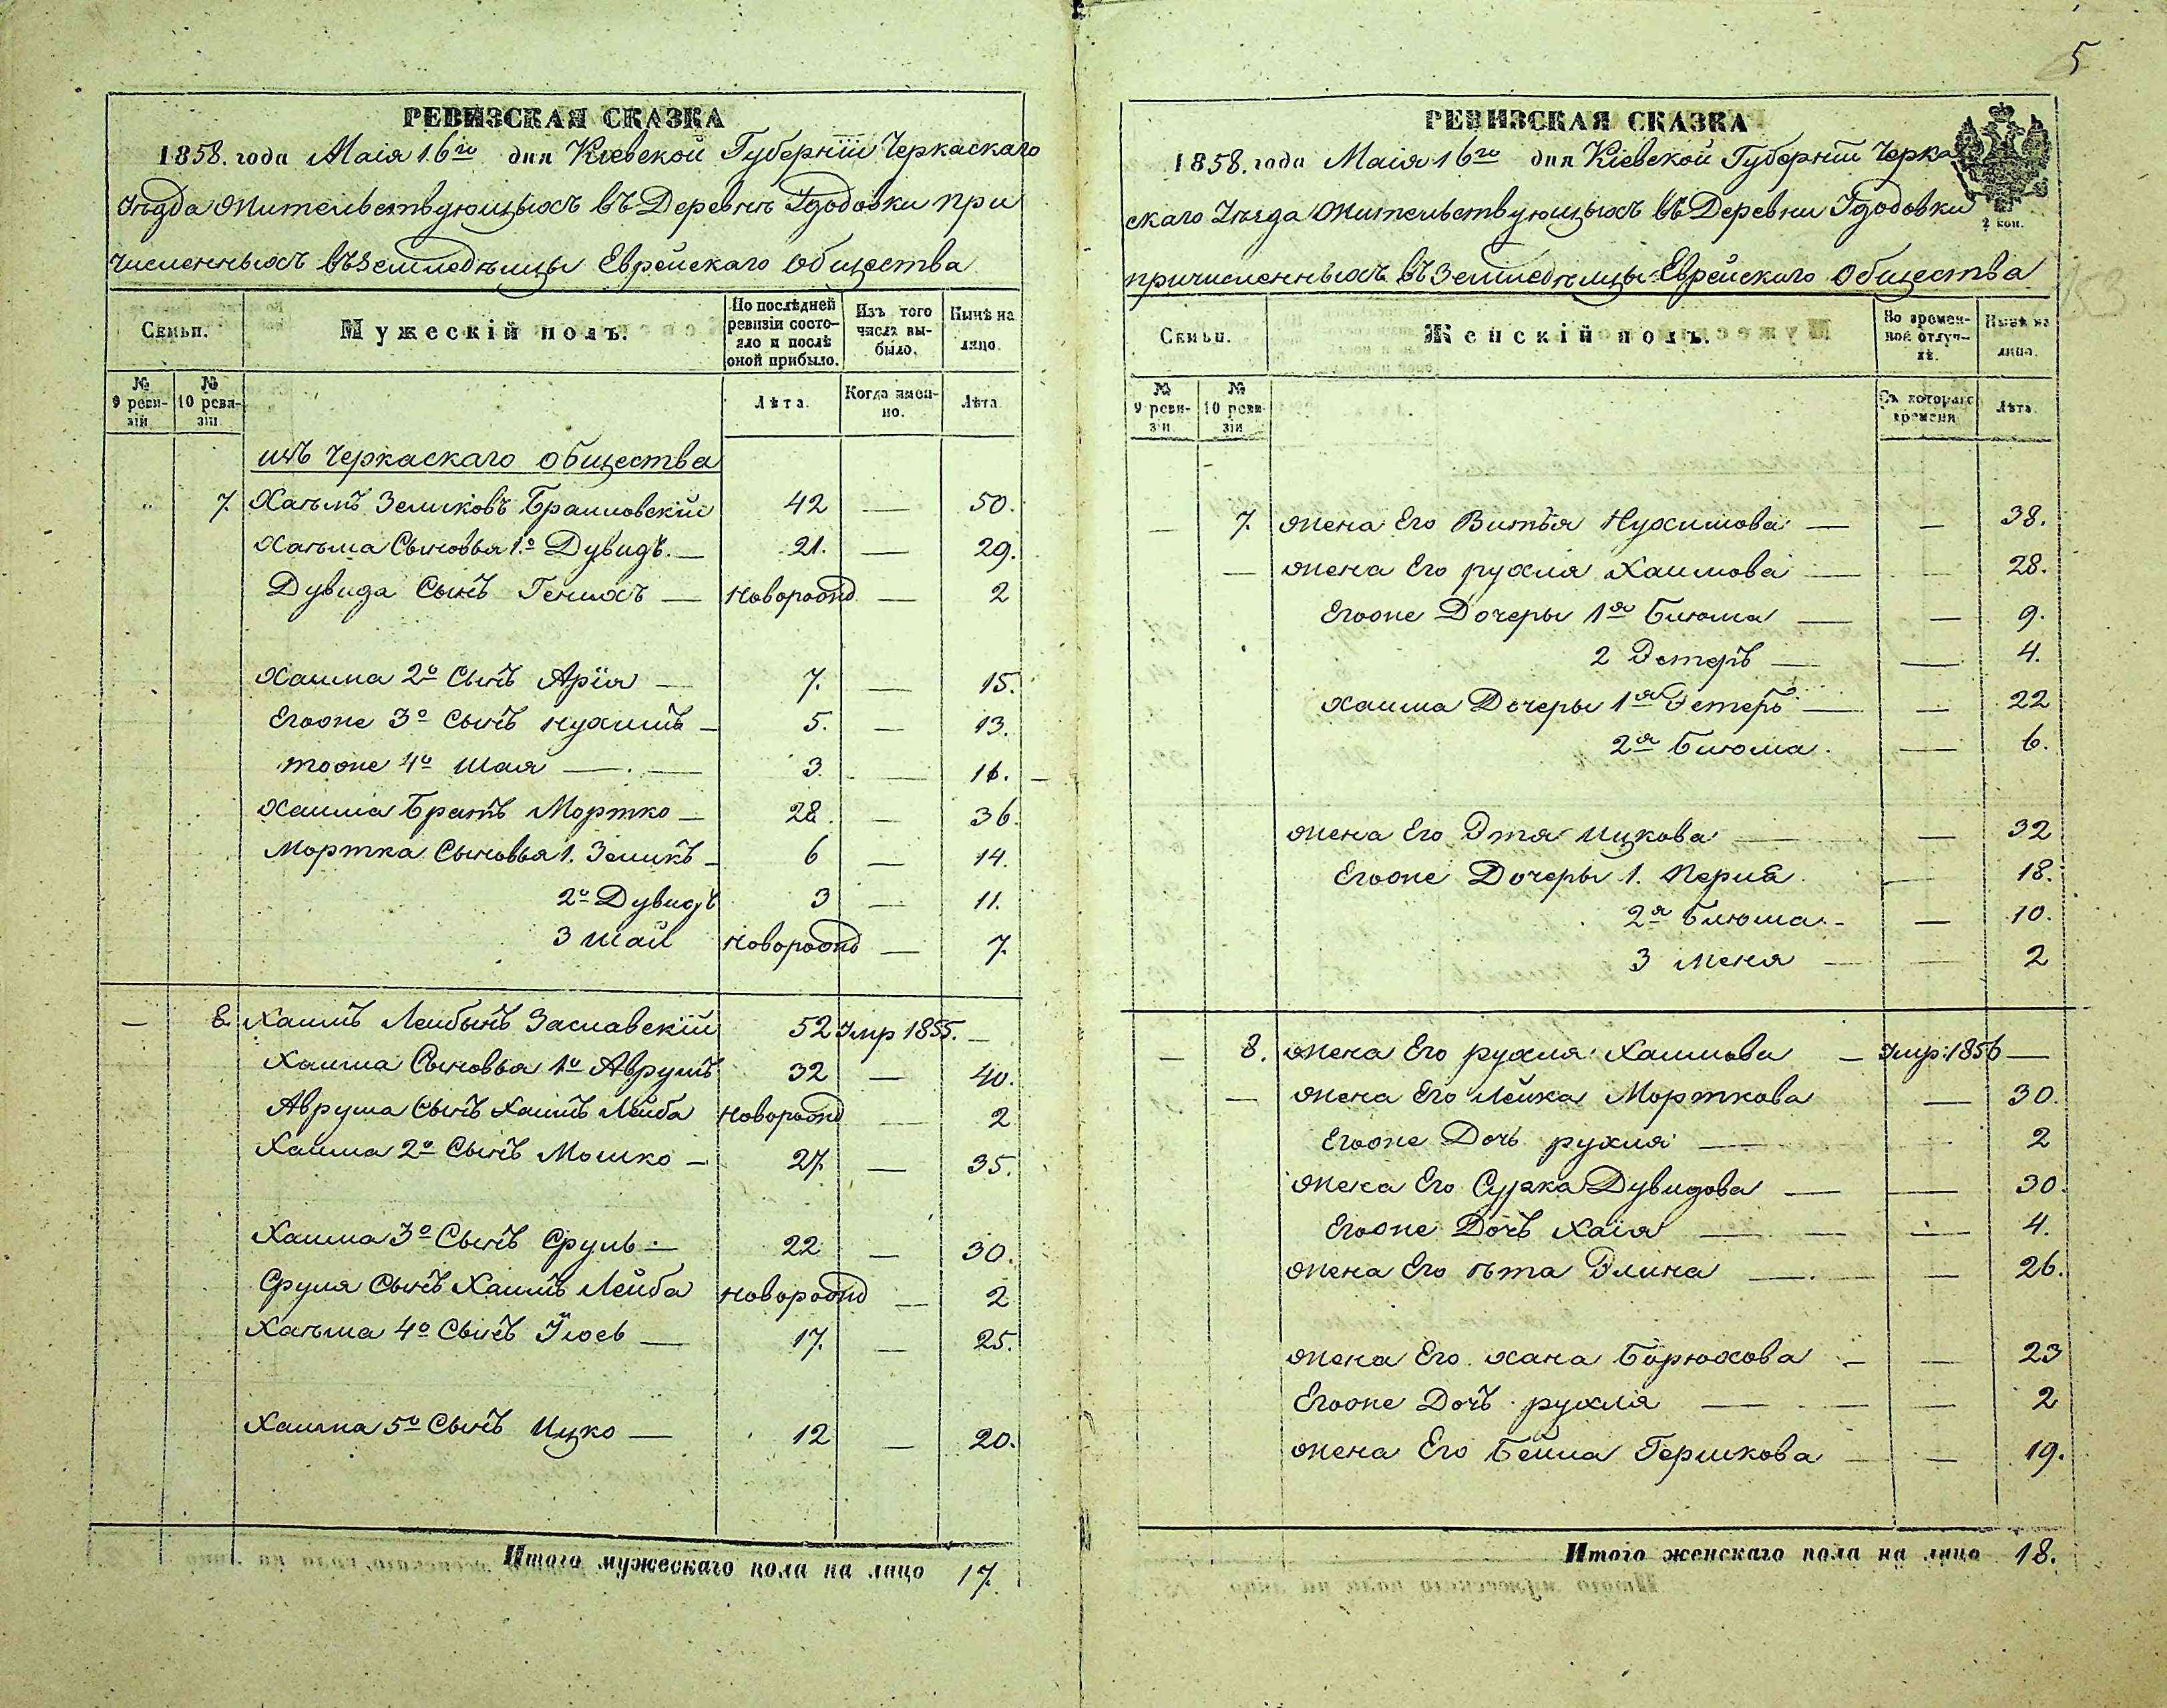 5
РЕВИЗСКАЯ СКАЗКА
1858. года Маія 16го дня Кіевской Губерніи Черкаскаго
Уѣзда жительствующихъ въ Деревнѣ Гдодовки при
численныхъ въ Землѣдѣльцы Еврейскаго Общества
Семьи.
Мужескій полъ.
По послѣдней ревизіи состояло и послѣ оной прибыло.
Изъ того числа выбыло.
Нынѣ на лицо.
№ 9 ревизіи
№ 10 ревизіи
Лѣта.
Когда именно.
Лѣта.
изъ Черкаскаго общества
7. Хаѣмъ Зельковъ Браиловскій 42 — 50.
Хаѣма Сыновья 1о Дувидъ. — 21. — 29.
Дувида Сынъ Генихъ — новорожд — 2
Хаима 2о Сынъ Арія — 7. — 15.
Егоже 3о Сынъ Нухимъ — 5. — 13.
тоже 4о Шая — 3. — 11.
Хаима Братъ Мортко — 28. — 36.
Мортка Сыновья 1. Зеликъ — 6 — 14.
2о Дувидъ 3 — 11.
3 Шая новорожд — 7.
— 8. Хаимъ Лейбынъ Заславскій 52 Умр 1855. —
Хаима Сыновья 1о Аврумъ 32 — 40.
Аврума Сынъ Хаимъ Лейба новорожд — 2
Хаима 2о Сынъ Мошко — 27. — 35.
Хаима 3о Сынъ Сруль — 22 — 30.
Сруля Сынъ Хаимъ Лейба новорожд — 2
Хаѣма 4о Сынъ Іось — 17. — 25.
Хаима 5о Сынъ Ицко — 12 — 20.
Итого мужескаго пола на лицо 17.
РЕВИЗСКАЯ СКАЗКА
1858. года Маія 16го дня Кіевской Губерніи Черка
скаго Уѣзда жительствующихъ въ Деревни Гдодовки
2 коп.
причисленныхъ въ Землѣдѣльцы Еврейскаго Общества
Семьи.
Женскій полъ.
Во временной отлучкѣ.
Нынѣ на лицо.
№ 9 ревизіи
№ 10 ревизіи
Съ котораго времени
Лѣта.
— 7. жена Его Витъя Нухимова — — 38.
— жена Его рухля Хаимова — 28.
Егоже Дочеры 1я Блюма — — 9.
2 Эстеръ — — 4.
Хаима Дочеры 1я Эстеръ — — 22
2я Блюма. — 6.
жена Его Этя Ицкова — — 32
Егоже Дочеры 1. Перля — 18.
2я Блюма. — — 10.
3 Меня — — 2
— 8. жена Его рухля Хаимова — Умр: 1856 —
— жена Его Лейка Морткова — 30.
Егоже Дочь рухля — — 2
жена Его Сурка Дувидова — — 30.
Егоже Дочь Хаія — — 4.
жена Его ѣта Элина — — 26.
жена Его хана Борюхова — — 23
Егоже Дочъ рухля — — 2
жена Его Бейла Гершкова — — 19.
Итого женскаго пола на лицо 18.